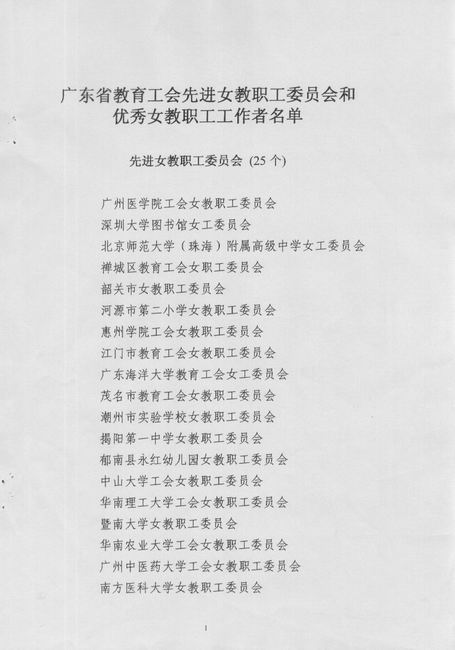 广东省教育工会先进女教职工委员会和
优秀女教职工工作者名单
先进女教职工委员会 (25 个)
广州医学院工会女教职工委员会
深圳大学图书馆女工委员会
北京师范大学（珠海）附属高级中学女工委员会
禅城区教育工会女职工委员会
韶关市女教职工委员会
河源市第二小学女教职工委员会
惠州学院工会女教职工委员会
江门市教育工会女教职工委员会
广东海洋大学教育工会女工委员会
茂名市教育工会女教职工委员会
潮州市实验学校女教职工委员会
揭阳第一中学女教职工委员会
郁南县永红幼儿园女教职工委员会
中山大学工会女教职工委员会
华南理工大学工会女教职工委员会
暨南大学女教职工委员会
华南农业大学工会女教职工委员会
广州中医药大学工会女教职工委员会
南方医科大学女教职工委员会
1